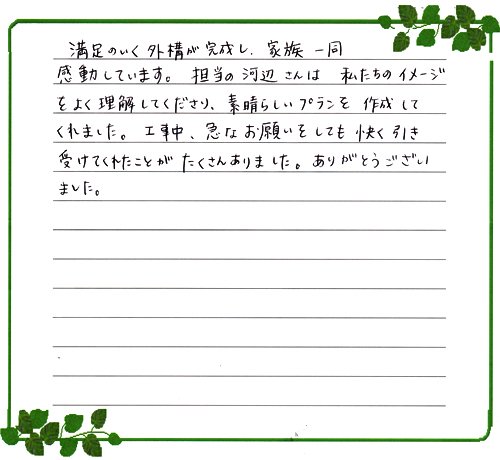 満足のいく外構が完成し、家族一同
感動しています。担当の河辺さんは 私たちのイメージ
をよく理解してくださり、素晴らしいプランを作成して
くれました。工事中、急なお願いをしても快く引き
受けてくれたことがたくさんありました。ありがとうござい
ました。